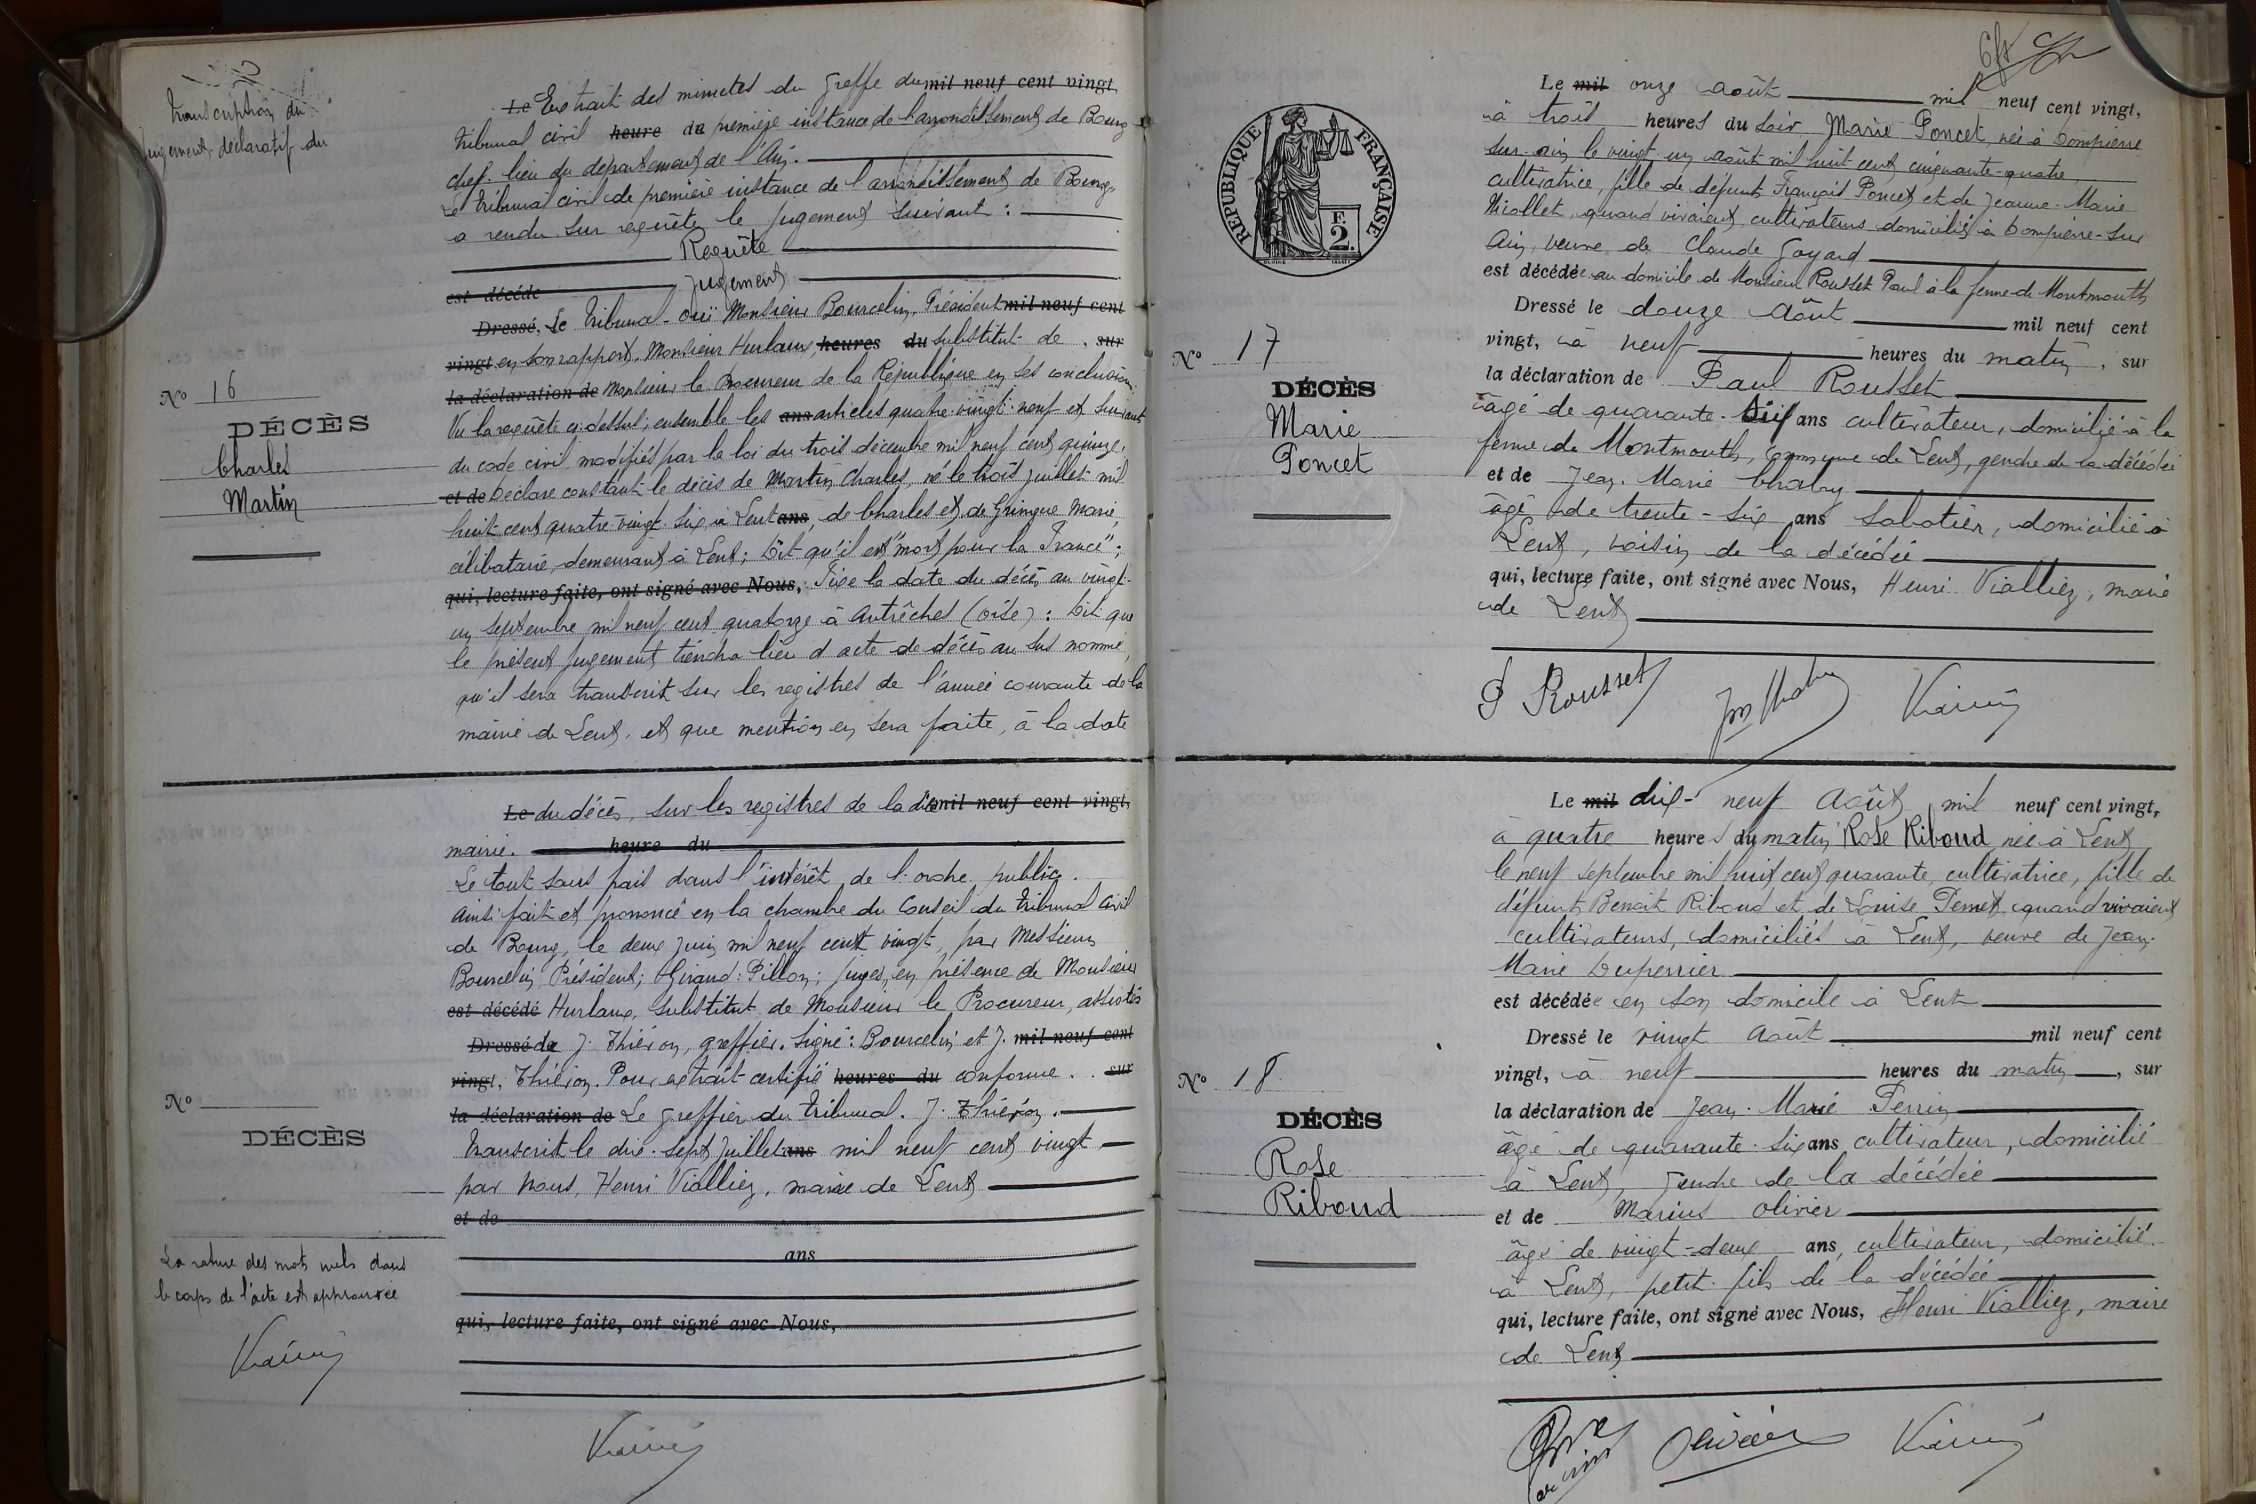 Transcription du
jugement déclaratif du
N° 16
DÉCÈS
Charles
Martin
Le Extrait des minutes du Greffe du mil neuf cent vingt
tribunal civil heure de première instance de l'arrondissement de Bourg
chef-lieu du département de l'Ain.
Le tribunal civil de première instance de l'arrondissement de Bourg
a rendu sur requête le jugement suivant :
Requête
est décédé Jugement
Dressé, Le Tribunal - ouï Monsieur Bourcelin, Président mil neuf cent
vingt en son rapport, Monsieur Hurlaux, heures du substitut de . sur
la déclaration de Monsieur le Procureur de la République en ses conclusions
Vu la requête ci-dessus, ensemble les ans articles quatre-vingt-neuf et suivants
du code civil modifiés par la loi du trois décembre mil neuf cent quinze,
et de Déclare constant le décès de Martin Charles, né le trois juillet mil
huit cent quatre-vingt-six à Lent ans, de Charles et de Gringue Marie,
célibataire, demeurant à Lent ; Dit qu'il est "mort pour la France" ;
qui, lecture faite, ont signé avec Nous, Fixe la date du décès au vingt-
un septembre mil neuf cent quatorze à Autrêches (Oise) : Dit que
le présent jugement tiendra lieu d'acte de décès au sus nommé,
qu'il sera transcrit sur les registres de l'année courante de la
mairie de Lent, et que mention en sera faite, à la date
N°
DÉCÈS
La rature des mots nuls dans
le corps de l'acte est approuvée
Le du décès, sur les registres de la dite mil neuf cent vingt,
mairie. heure du
Le tout sans frais dans l'intérêt de l'ordre public.
Ainsi fait et prononcé en la chambre du Conseil du tribunal civil
de Bourg, le deux juin mil neuf cent vingt, par Messieurs
Bourcelin Président ; Giraud : Pillon ; juges, en présence de Monsieur
est décédé Hurlaux, substitut de Monsieur le Procureur, assistés
Dressé de J. Thiéron, greffier. Signé : Bourcelin et J. mil neuf cent
vingt, Thiéron. Pour extrait certifié heures du conforme . . sur
la déclaration de Le greffier du tribunal. J. Thiéron.
Transcrit le dix-sept juillet ans mil neuf cent vingt
par Nous, Henri Vialliez, maire de Lent
et de
ans
qui, lecture faite, ont signé avec Nous,
RÉPUBLIQUE FRANÇAISE
F.
2.
N° 17
DÉCÈS
Marie
Poncet
Le mil onze août mil neuf cent vingt,
à trois heures du soir Marie Poncet, née à Dompierre
sur-Ain le vingt-un août mil huit cent cinquante-quatre,
cultivatrice, fille de défunts François Poncet et de Jeanne-Marie
Miallet, quand vivaient cultivateurs domiciliés à Dompierre-sur
Ain, veuve de Claude Goyard
est décédée au domicile de Monsieur Rousset Paul à la ferme de Montmouth
Dressé le douze Août mil neuf cent
vingt, à neuf heures du matin, sur
la déclaration de Paul Rousset
âgé de quarante-six ans cultivateur, domicilié à la
ferme de Montmouth, commune de Lent, gendre de la décédée
et de Jean-Marie Chabry
âgé de trente-six ans sabotier, domicilié à
Lent, voisin de la décédée
qui, lecture faite, ont signé avec Nous, Henri Vialliez, maire
de Lent
P Rousset
N° 18
DÉCÈS
Rose
Riboud
Le mil dix-neuf Août mil neuf cent vingt,
à quatre heures du matin Rose Riboud née à Lent
le neuf septembre mil huit cent quarante, cultivatrice, fille de
défunts Benoît Riboud et de Louise Pernet, quand vivaient
cultivateurs, domiciliés à Lent, veuve de Jean-
Marie Duperrier
est décédée en son domicile à Lent
Dressé le vingt Août mil neuf cent
vingt, à neuf heures du matin, sur
la déclaration de Jean-Marie Perrin
âgé de quarante-six ans cultivateur, domicilié
à Lent, gendre de la décédée
et de Marius Olivier
âgé de vingt-deux ans, cultivateur, domicilié
à Lent, petit-fils de la décédée
qui, lecture faite, ont signé avec Nous, Henri Vialliez, maire
de Lent
Olivier